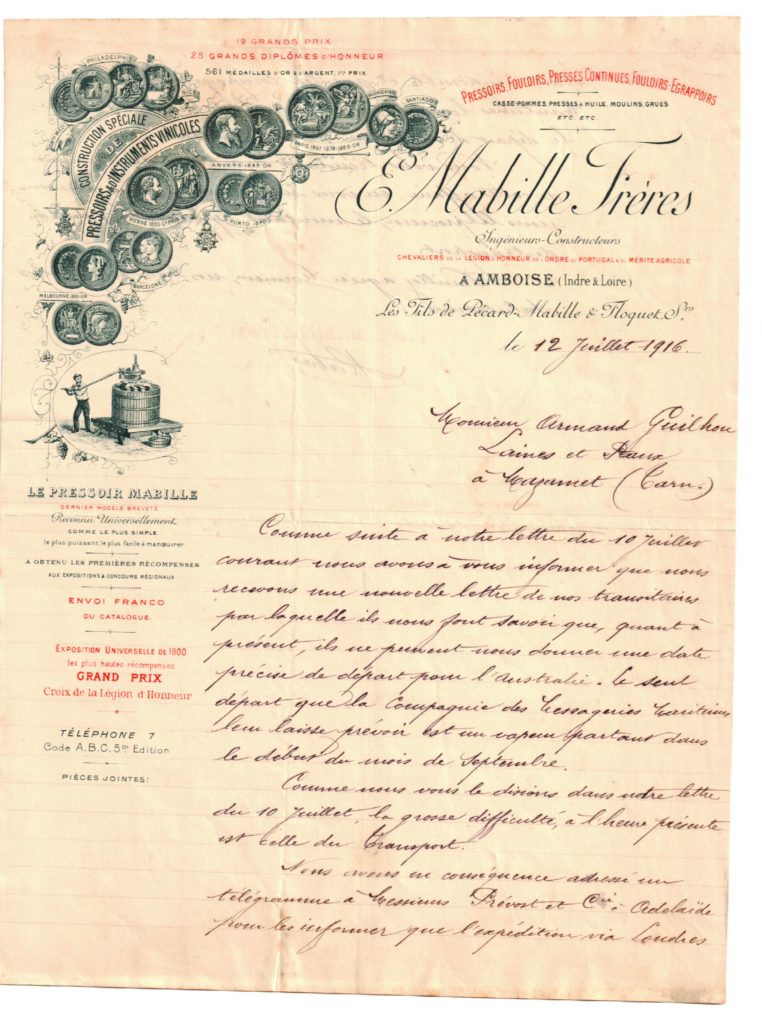 12 GRANDS PRIX
28 GRANDS DIPLÔMES D'HONNEUR
561 MÉDAILLES D'OR & D'ARGENT, 1ers PRIX
PHILADELPHIE
CONSTRUCTION SPÉCIALE
DE
PRESSOIRS & D'INSTRUMENTS VINICOLES
SANTIAGO
PARIS 1867-1878-1889 OR
ANVERS 1885 OR
VIENNE 1890 Gd PRIX
PORTO 1880
BARCELONE
MELBOURNE 1881 OR
PRESSOIRS FOULOIRS, PRESSES CONTINUES, FOULOIRS EGRAPPOIRS
CASSE-POMMES, PRESSES A HUILE, MOULINS, GRUES
ETC. ETC.
E. Mabille Frères
Ingénieurs-Constructeurs
CHEVALIERS DE LA LÉGION D'HONNEUR DE L'ORDRE DU PORTUGAL & DU MÉRITE AGRICOLE
A AMBOISE (Indre & Loire)
Les Fils de Pécard-Mabille & Floquet, Srs
le 12 Juillet 1916
Monsieur Armand Guilhou
Laines et Peaux
à Mazamet (Tarn)
LE PRESSOIR MABILLE
DERNIER MODÈLE BREVETÉ
Reconnu Universellement
COMME LE PLUS SIMPLE
le plus puissant, le plus facile à manœuvrer
A OBTENU LES PREMIÈRES RÉCOMPENSES
AUX EXPOSITIONS & CONCOURS RÉGIONAUX
ENVOI FRANCO
DU CATALOGUE
EXPOSITION UNIVERSELLE DE 1900
les plus hautes récompenses
GRAND PRIX
Croix de la Légion d'Honneur
TÉLÉPHONE 7
Code A.B.C. 5th Edition
PIÈCES JOINTES:
Comme suite à notre lettre du 10 Juillet
courant nous avons à vous informer que nous
recevons une nouvelle lettre de nos transitaires
par laquelle ils nous font savoir que, quant à
présent, ils ne peuvent nous donner une date
précise de départ pour l'australie. Le seul
départ que la Compagnie des Messageries Maritimes
leur laisse prévoir est un vapeur partant dans
le début du mois de Septembre.
Comme nous vous le disions dans notre lettre
du 10 Juillet, la grosse difficulté, à l'heure présente
est celle du Transport.
Nous avons en conséquence adressé un
télégramme à Messieurs Prévost et Cie à Adelaïde
pour les informer que l'expédition via Londres